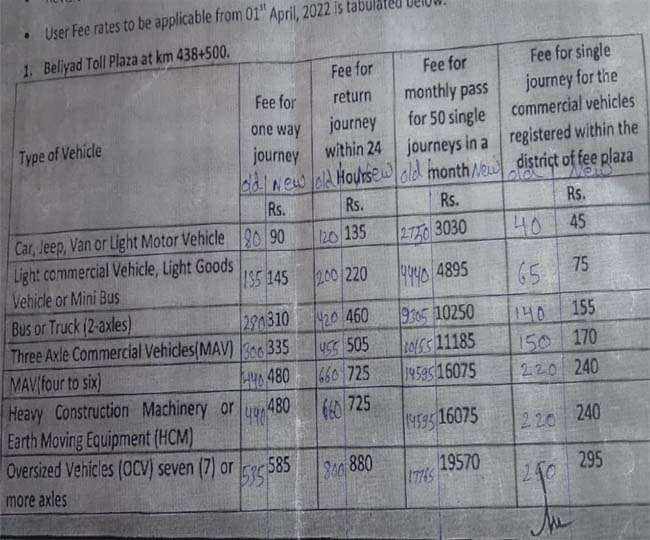 • User Fee rates to be applicable from 01st April, 2022 is tabulated below.
1. Beliyad Toll Plaza at km 438+500.
Type of Vehicle
Fee for one way journey
Fee for return journey within 24 Hours
Fee for monthly pass for 50 single journeys in a month
Fee for single journey for the commercial vehicles registered within the district of fee plaza
old New old New old New old New
Rs. Rs. Rs. Rs.
Car, Jeep, Van or Light Motor Vehicle 80 90 120 135 2750 3030 40 45
Light commercial Vehicle, Light Goods Vehicle or Mini Bus 135 145 200 220 4440 4895 65 75
Bus or Truck (2-axles) 280 310 420 460 9305 10250 140 155
Three Axle Commercial Vehicles(MAV) 300 335 455 505 10155 11185 150 170
MAV(four to six) 440 480 660 725 14595 16075 220 240
Heavy Construction Machinery or Earth Moving Equipment (HCM) 440 480 660 725 14595 16075 220 240
Oversized Vehicles (OCV) seven (7) or more axles 535 585 800 880 17765 19570 295